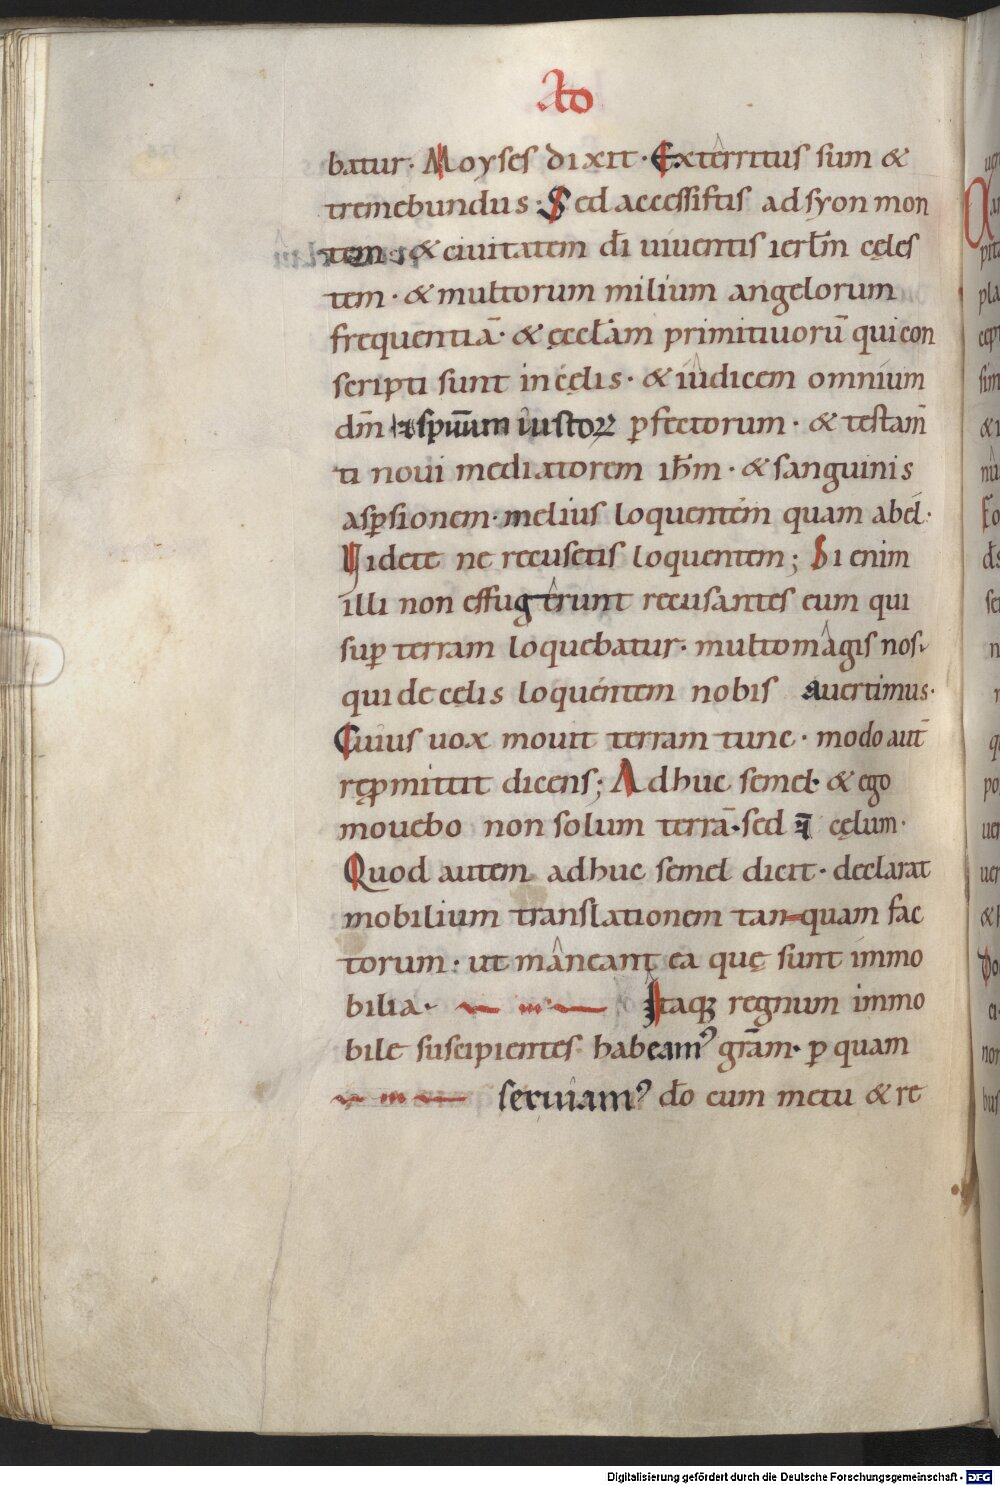 AD
batur· Moyses dixit· Exterritus sum &
tremebundus· Sed accessistis ad syon mon
tem· & ciuitatem di̅ uiuentis ierłm cęles
tem· & multorum milium angelorum
frequentiā· & ęccłam primitiuorū qui con
scripti sunt in cęlis· & iudicem omnium
dm̅ & spūum iustoꝝ ꝑfectorum· & testam̅
ti noui mediatorem ihm̅· & sanguinis
asꝑsionem· melius loquentem quam abel·
Videte ne recusetis loquentem; Si enim
illi non effugerunt recusantes eum qui
suꝑ terram loquebatur· multo magis nos·
qui de cęlis loquentem nobis auertimus·
Cuius uox mouit terram tunc· modo aut̅
reꝓmittit dicens; Adhuc semel· & ego
mouebo non solum terrā· sed & cęlum·
Quod autem adhuc semel dicit· declarat
mobilium translationem tanquam fac
torum· ut maneant ea quę sunt immo
bilia· Itaqꝫ regnum immo
bile suscipientes habeamꝰ gra̅m· ꝑ quam
seruiamꝰ do̅ cum metu & re
Digitalisierung gefördert durch die Deutsche Forschungsgemeinschaft - DFG